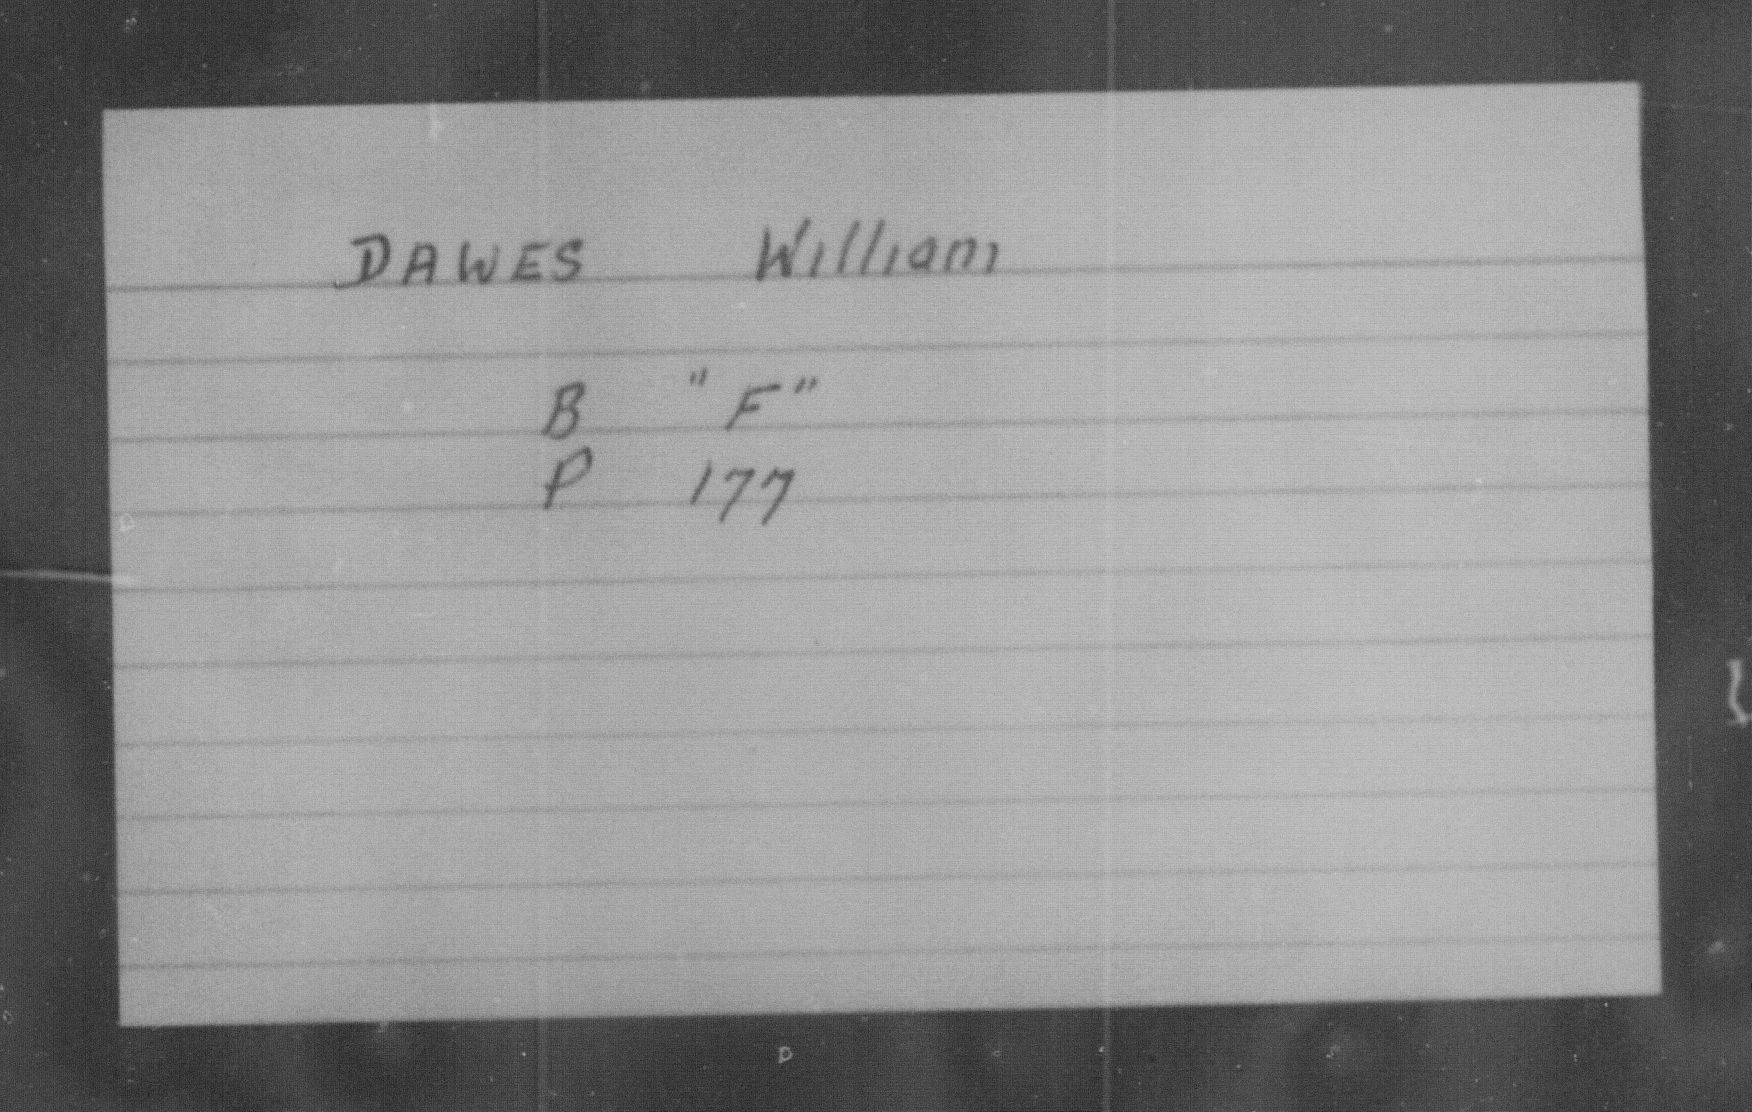 DAWES William
B "F"
P 177